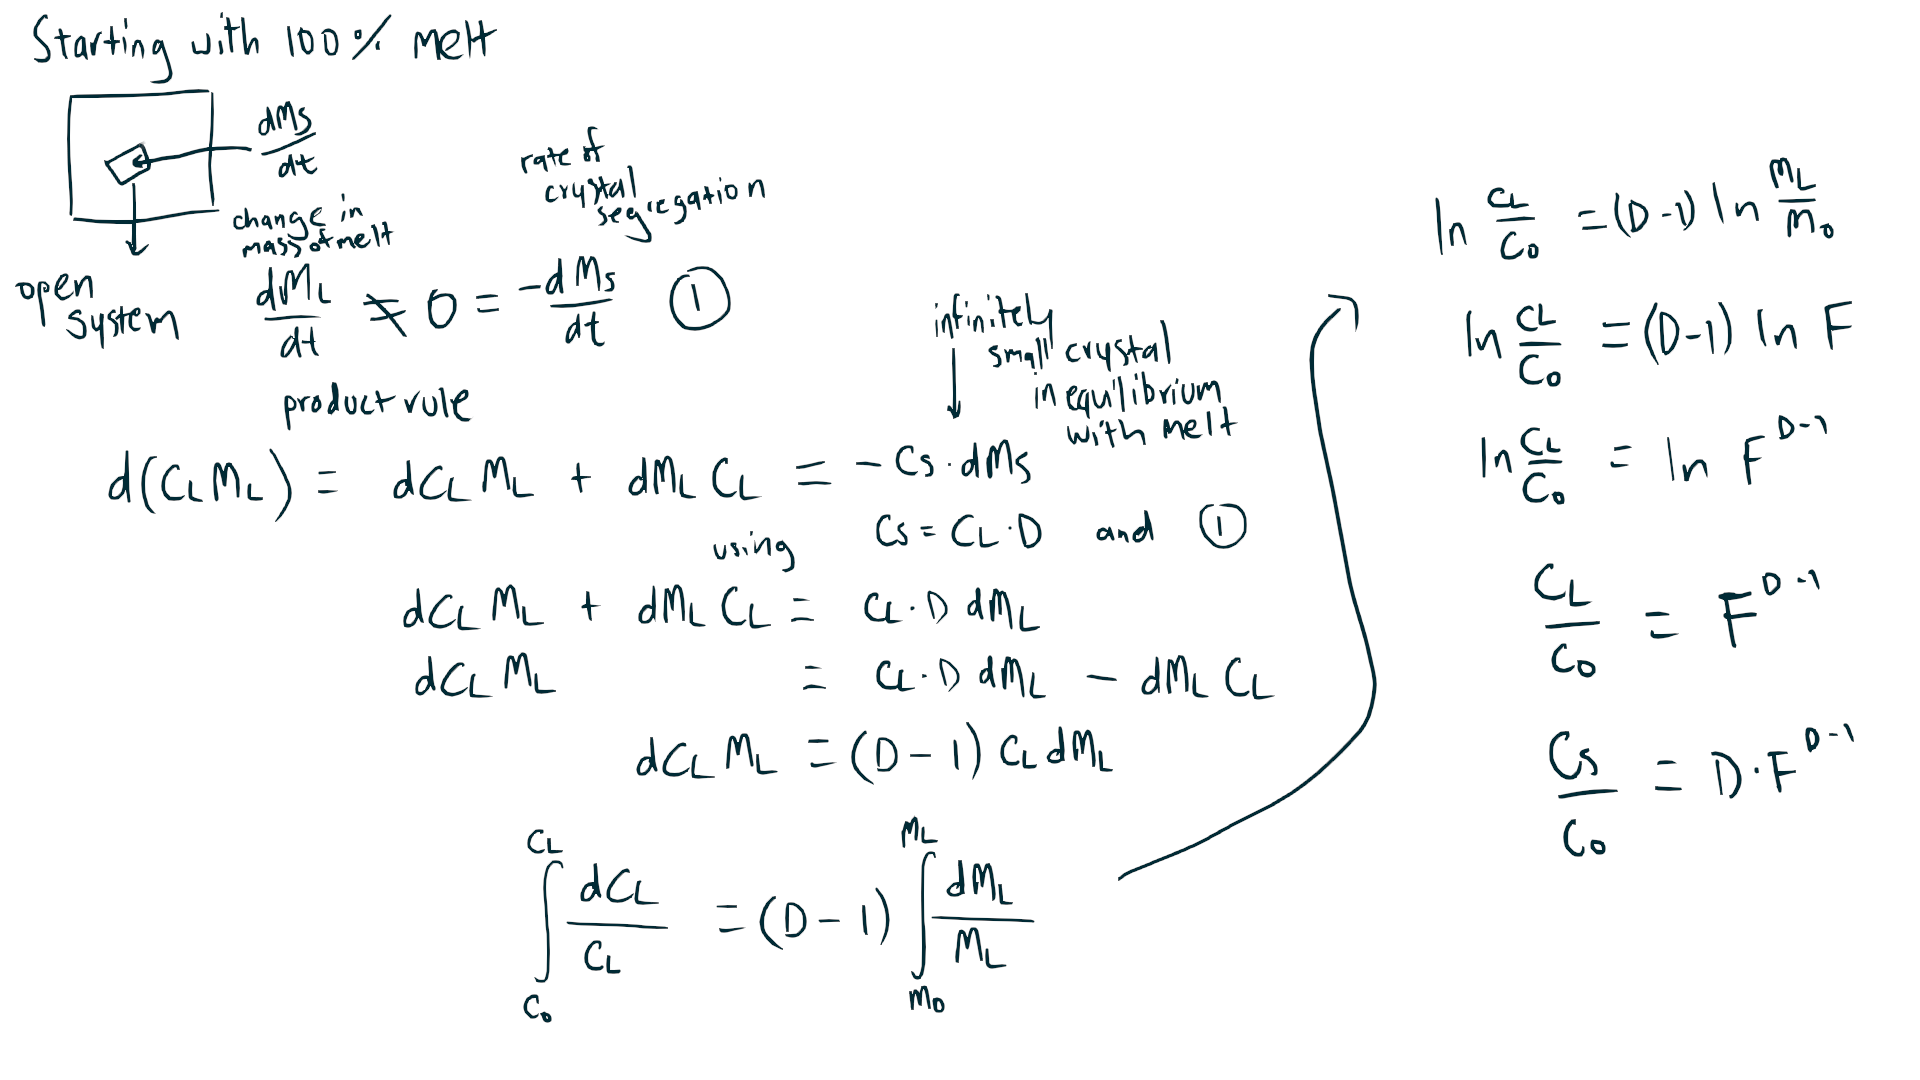 Starting with 100% melt
dMs/dt
open system
change in
mass of melt
rate of
crystal
segregation
dML/dt ≠ 0 = -dMs/dt ①
product rule
infinitely
small crystal
in equilibrium
with melt
d(CLML) = dCL ML + dML CL = - Cs · dMs
using Cs = CL · D and ①
dCL ML + dML CL = CL · D dML
dCL ML = CL · D dML - dML CL
dCL ML = (D - 1) CL dML
∫_{C0}^{CL} dCL/CL = (D - 1) ∫_{M0}^{ML} dML/ML
ln CL/C0 = (D - 1) ln ML/M0
ln CL/C0 = (D-1) ln F
ln CL/C0 = ln F^{D-1}
CL/C0 = F^{D-1}
Cs/C0 = D · F^{D-1}